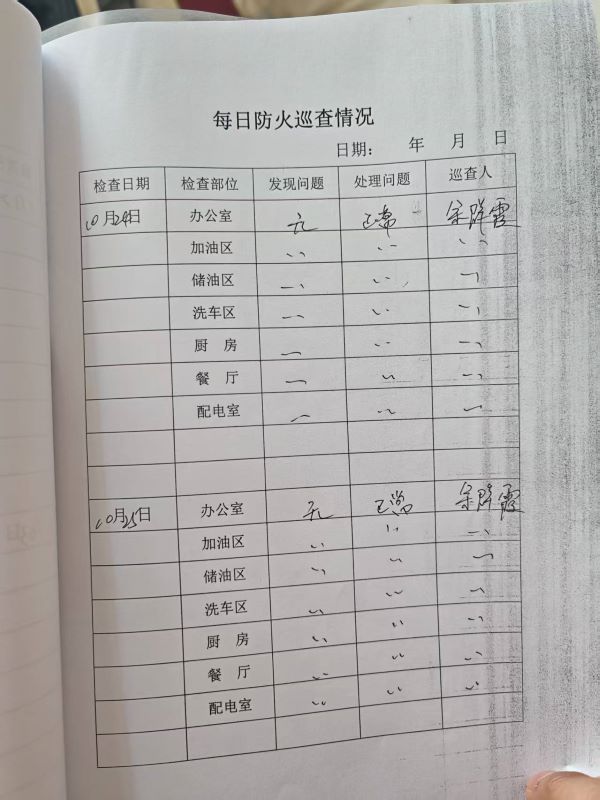 每日防火巡查情况
日期： 年 月 日
检查日期 检查部位 发现问题 处理问题 巡查人
10月24日 办公室 无 正常 宋群霞
加油区 〃 〃 〃
储油区 〃 〃 〃
洗车区 〃 〃 〃
厨 房 〃 〃 〃
餐 厅 〃 〃 〃
配电室 〃 〃 〃
10月25日 办公室 无 正常 宋群霞
加油区 〃 〃 〃
储油区 〃 〃 〃
洗车区 〃 〃 〃
厨 房 〃 〃 〃
餐 厅 〃 〃 〃
配电室 〃 〃 〃